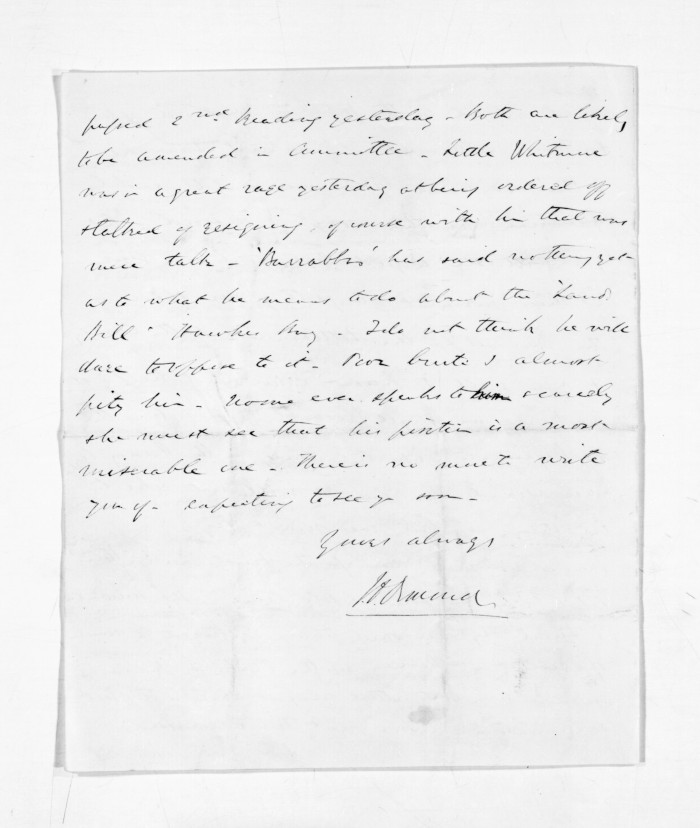 passed 2nd Reading yesterday - Both are likely
to be amended in Committee - Little Whitmore
was in a great rage yesterday at being ordered off
& talked of resigning, of course with him that was
mere talk - 'Barrabbas' has said nothing yet
as to what he means to do about the 'Land
Bill' Hawkes Bay - I do not think he will
dare to oppose to it - Poor brute I almost
pity him - no one ever speaks to him scarcely
& he must see that his position is a most
miserable one - There is no more to write
you of - expecting to see you soon -
Yours always
J D Ormond